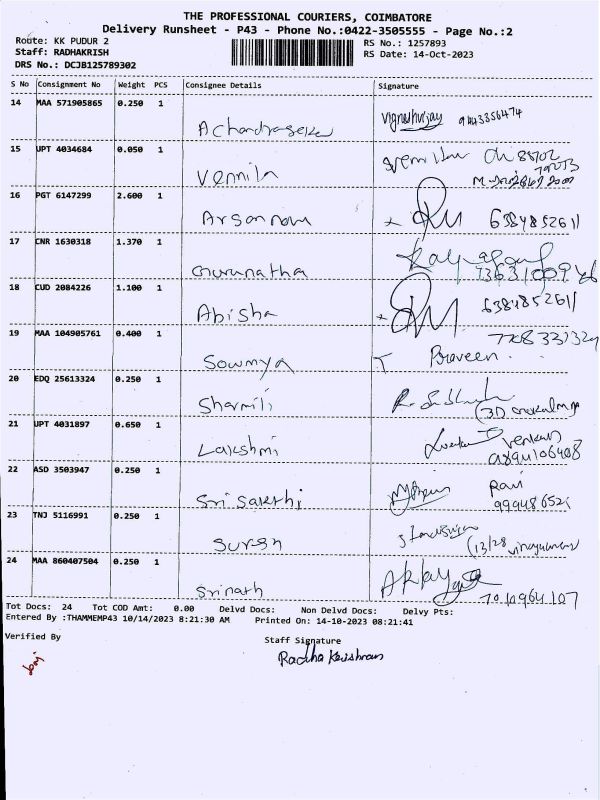 THE PROFESSIONAL COURIERS, COIMBATORE
Delivery Runsheet - P43 - Phone No.:0422-3505555 - Page No.:2
Route: KK PUDUR 2
Staff: RADHAKRISH
DRS No.: DCJB125789302
RS No.: 1257893
RS Date: 14-Oct-2023
S No Consignment No Weight PCS Consignee Details Signature
14 MAA 571905865 0.250 1
A Chandrasekar
15 UPT 4034684 0.050 1
Vennila
16 PGT 6147299 2.600 1
6384852611
17 CNR 1630318 1.370 1
Gurunatha
18 CUD 2084226 1.100 1 6384852611
Abisha
19 MAA 104905761 0.400 1
Sowmya Praveen.
20 EDQ 25613324 0.250 1
Sharmili
21 UPT 4031897 0.650 1
Lakshmi
22 ASD 3503947 0.250 1 Ravi
Sri Sakthi
23 TNJ 5116991 0.250 1
Suresh
24 MAA 860407504 0.250 1
Srinath
Tot Docs: 24 Tot COD Amt: 0.00 Delvd Docs: Non Delvd Docs: Delvy Pts:
Entered By :THAMMEMP43 10/14/2023 8:21:30 AM Printed On: 14-10-2023 08:21:41
Verified By Staff Signature
Radha Krishnan